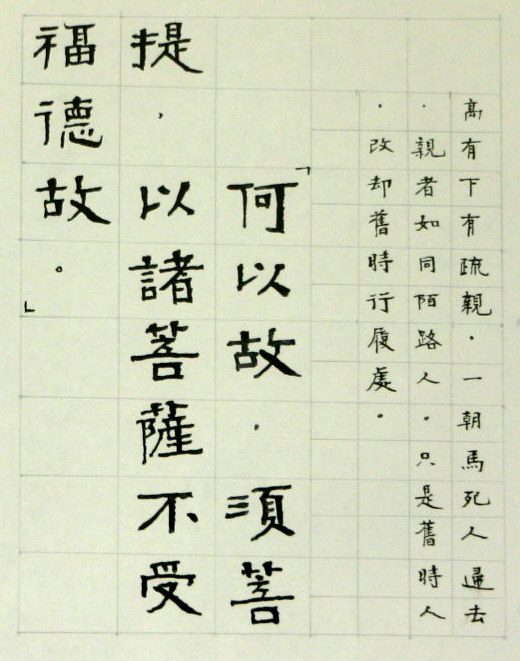 高有下有疏親．一朝馬死人歸去
．親者如同陌路人．只是舊時人
．改却舊時行履處．
「何以故．須菩
提，以諸菩薩不受
福德故。」